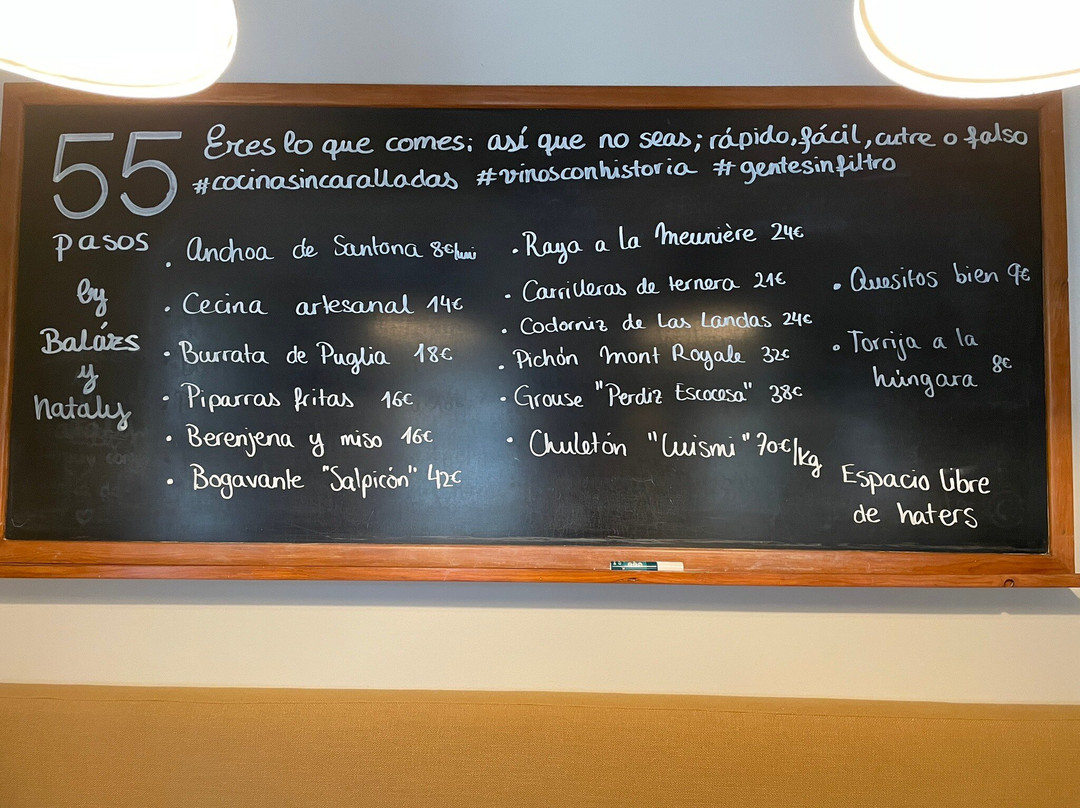 55
pasos
by
Balázs
y
Nataly
Eres lo que comes; así que no seas; rápido, fácil, cutre o falso
#cocinasincaralladas #vinosconhistoria #gentesinfiltro
. Anchoa de Santona 8€/uni
. Cecina artesanal 14€
. Burrata de Puglia 18€
. Piparras fritas 16€
. Berenjena y miso 16€
. Bogavante "Salpicón" 42€
. Raya a la Meunière 24€
. Carrilleras de ternera 21€
. Codorniz de Las Landas 24€
. Pichón Mont Royale 32€
. Grouse "Perdiz Escocesa" 38€
. Chuletón "Luismi" 70€/kg
. Quesitos bien 9€
. Torrija a la
húngara 8€
Espacio libre
de haters